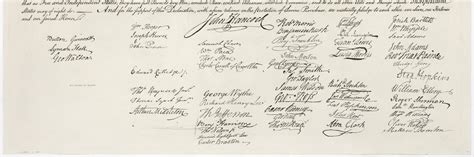 And for the support of this Declaration, with a firm reliance on the Protection of divine Providence, we mutually pledge to each other our Lives, our Fortunes
and our sacred Honor.
John Hancock
Button Gwinnett
Lyman Hall
Geo Walton.
Wm Hooper
Joseph Hewes,
John Penn
Edward Rutledge.
Thos Heyward Junr.
Thomas Lynch Junr.
Arthur Middleton
Samuel Chase
Wm Paca
Thos Stone
Charles Carroll of Carrollton
George Wythe
Richard Henry Lee
Th Jefferson
Benj Harrison
Thos Nelson jr.
Francis Lightfoot Lee
Carter Braxton
Robt Morris
Benjamin Rush
Benj. Franklin
John Morton
Geo Clymer
Jas. Smith
Geo. Taylor
James Wilson
Geo. Ross
Caesar Rodney
Geo Read
Tho M:Kean
Wm Floyd
Phil. Livingston
Frans. Lewis
Lewis Morris
Richd. Stockton
Jno Witherspoon
Fras. Hopkinson
John Hart
Abra Clark
Josiah Bartlett
Wm Whipple
Saml Adams
John Adams
Robt Treat Paine
Elbridge Gerry
Step. Hopkins
William Ellery
Roger Sherman
Saml Huntington
Wm Williams
Oliver Wolcott
Matthew Thornton